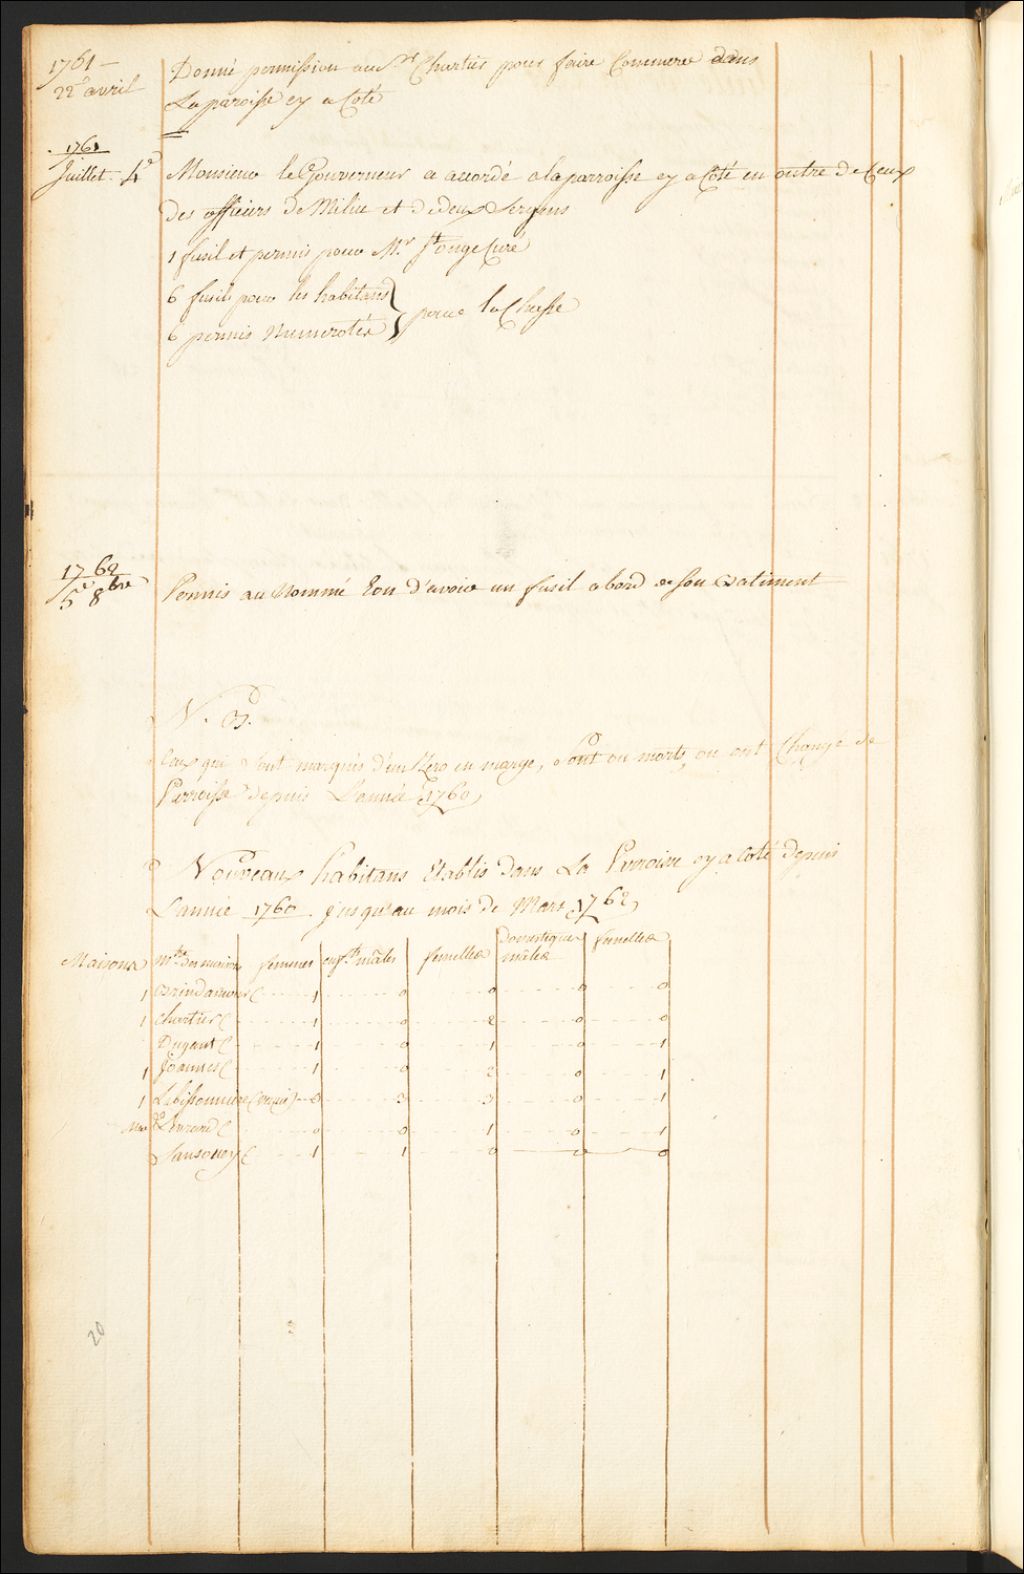 1761 –
22e avril
Donné permission au Sr Chartier pour faire Commerce dans
La paroisse cy a Coté
1761
Juillet 4e
Monsieur le Gouverneur a accordé a la parroisse cy a Coté en outre de Ceux
des officiers de Milice et de deux Sergens
1 fusil et permis pour Mr St onge Curé
6 fusils pour les habitans
6 permis Numerotés
pour la Chasse
1762
5e 8bre
Permis au Nommé Eon d'avoir un fusil abord de son Batiment
N. B.
Ceux qui sont marqués d'un Zero en marge, sont ou morts, ou ont Changé de
Parroisse depuis L'année 1760,
Nouveaux habitans Etablis dans La Parroisse cy a Coté depuis
L'année 1760. jusqu'au mois de Mars 1762,
Maisons femmes enfts mâles femelles Domestiques mâles femelles
1 1 0 0 0 0
1 Chartier 1 0 2 0 0
Dugant 1 0 1 0 1
1 Joannes 1 0 2 0 1
1 Labissonniere 0 3 3 0 1
0 0 1 0 1
Sansoucy 1 1 0 0 0
20